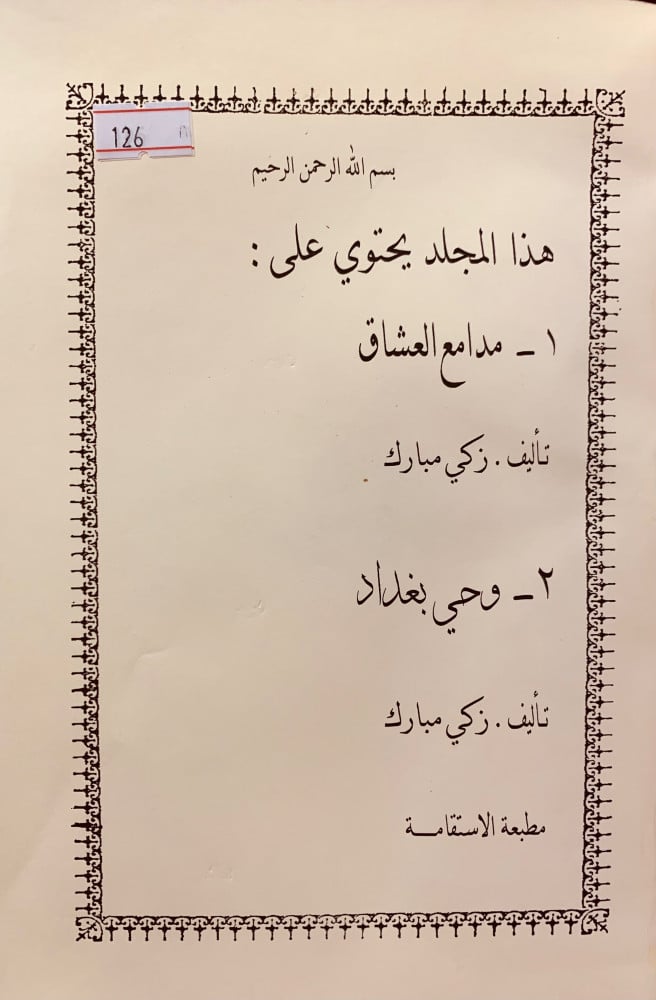 126
بسم الله الرحمن الرحيم
هذا المجلد يحتوي على :
١ - مدامع العشاق
تأليف . زكي مبارك
٢ - وحي بغداد
تأليف . زكي مبارك
مطبعة الاستقامـــة